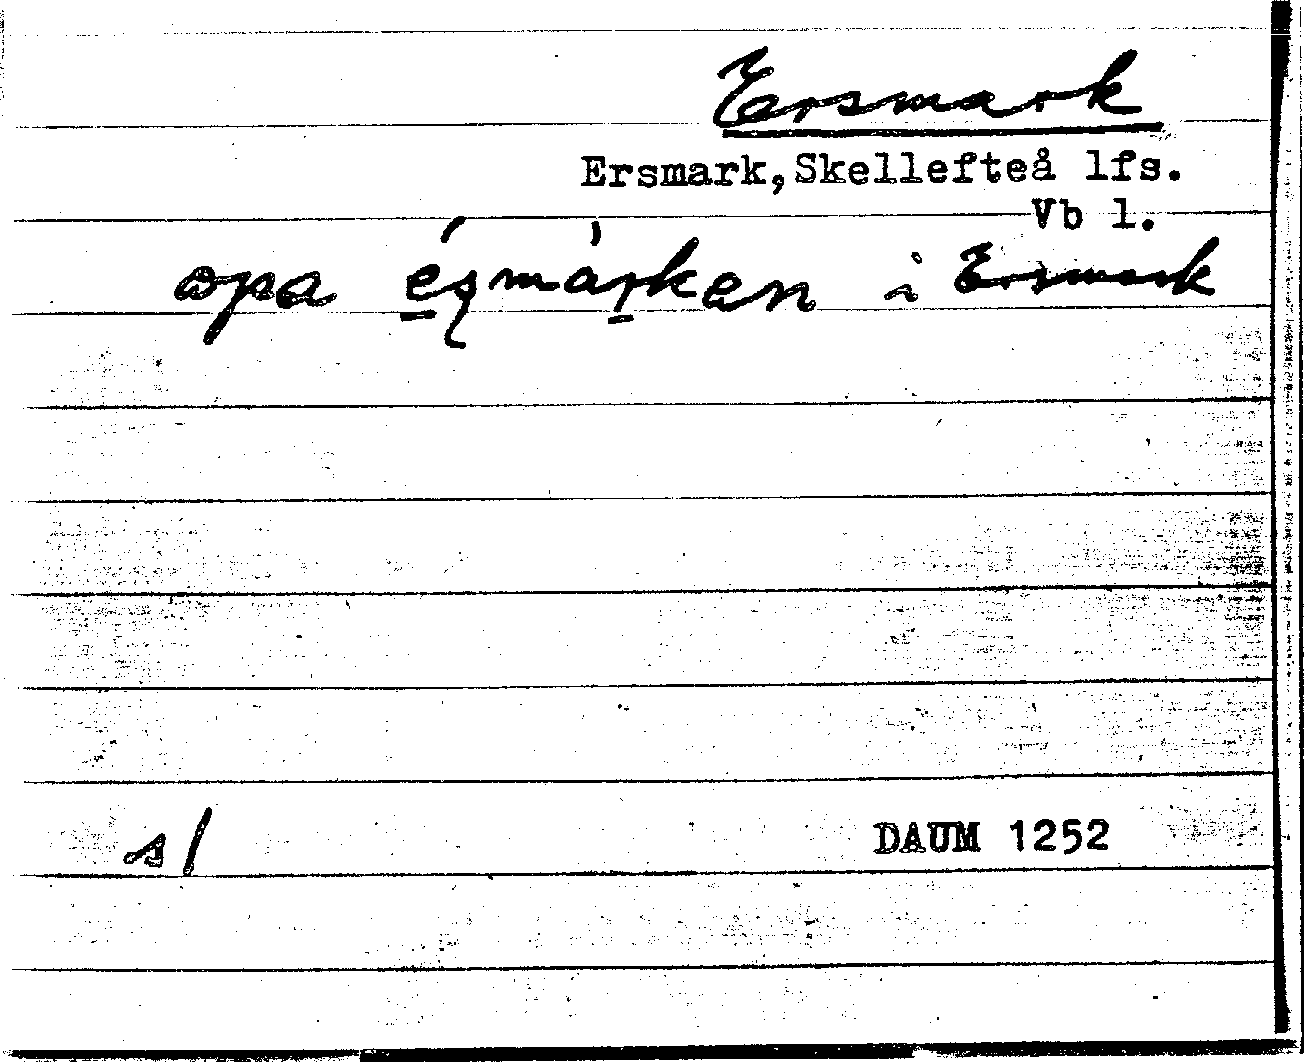 Ersmark
Ersmark, Skellefteå lfs.
Vb l.
opa i Ersmark
s1
DAUM 1252